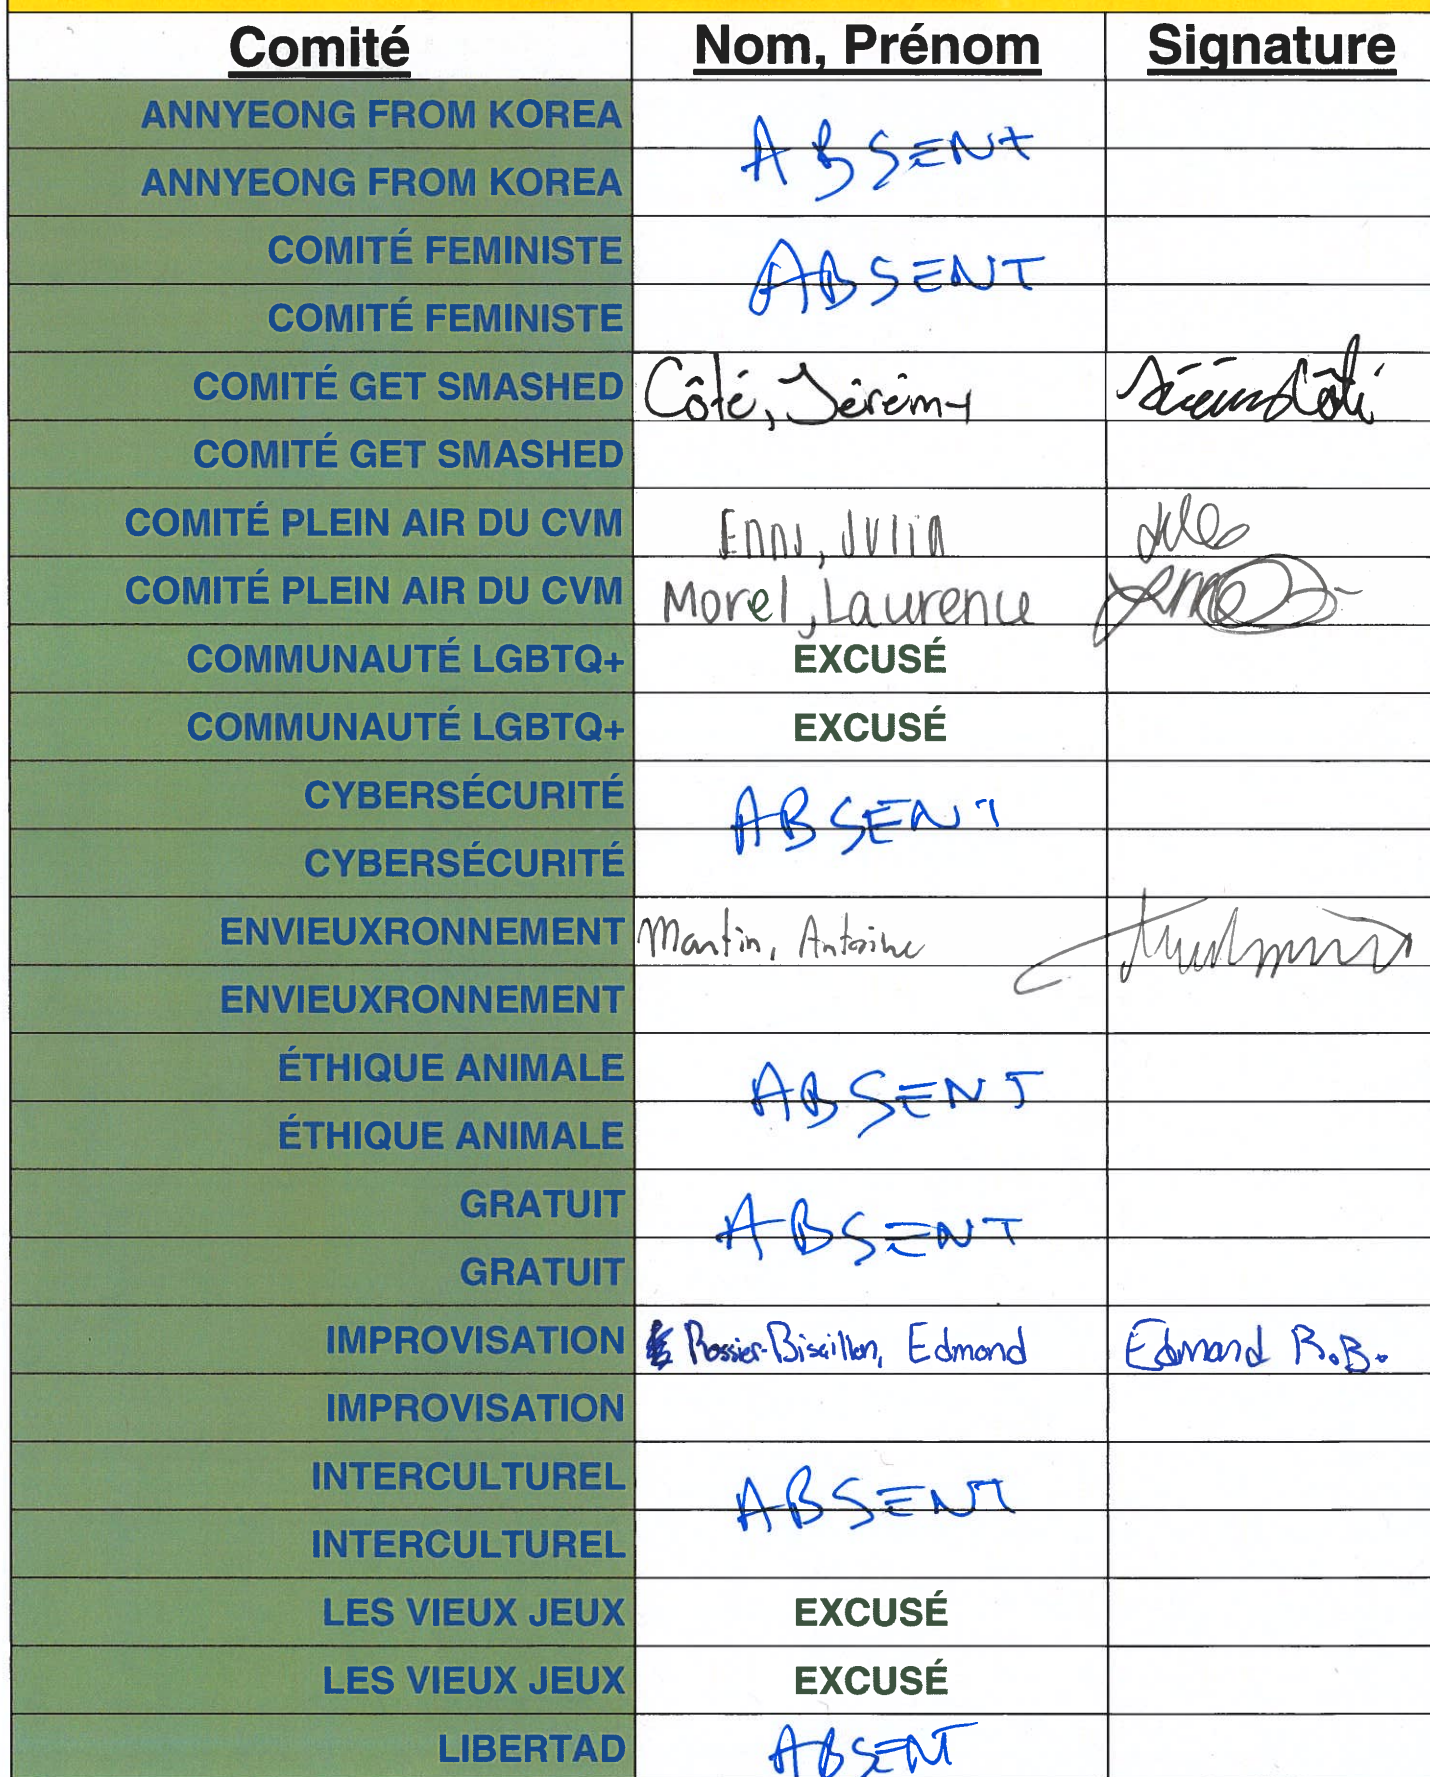 Comité Nom, Prénom Signature
ANNYEONG FROM KOREA
ABSENT
ANNYEONG FROM KOREA
COMITÉ FEMINISTE
ABSENT
COMITÉ FEMINISTE
COMITÉ GET SMASHED Côté, Jérémy Jérémy Côté
COMITÉ GET SMASHED
COMITÉ PLEIN AIR DU CVM Julia
COMITÉ PLEIN AIR DU CVM Morel, Laurence
COMMUNAUTÉ LGBTQ+ EXCUSÉ
COMMUNAUTÉ LGBTQ+ EXCUSÉ
CYBERSÉCURITÉ
ABSENT
CYBERSÉCURITÉ
ENVIEUXRONNEMENT Martin, Antoine
ENVIEUXRONNEMENT
ÉTHIQUE ANIMALE
ABSENT
ÉTHIQUE ANIMALE
GRATUIT
ABSENT
GRATUIT
IMPROVISATION Rossier-Bisaillon, Edmond Edmond R.B.
IMPROVISATION
INTERCULTUREL
ABSENT
INTERCULTUREL
LES VIEUX JEUX EXCUSÉ
LES VIEUX JEUX EXCUSÉ
LIBERTAD ABSENT